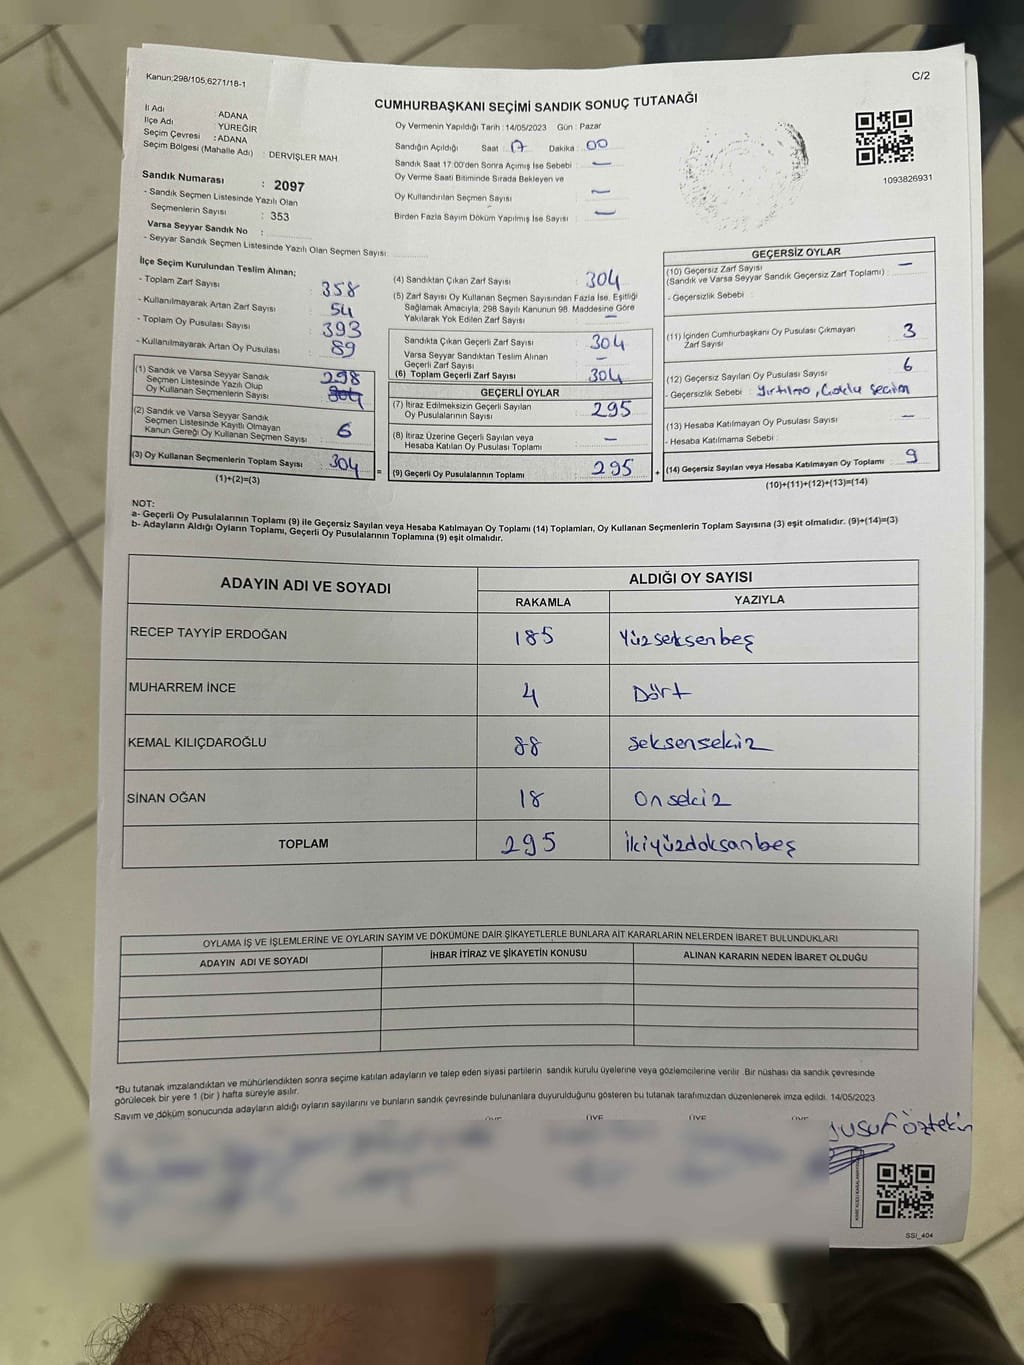 Kanun;298/105,6271/18-1
C/2
CUMHURBAŞKANI SEÇİMİ SANDIK SONUÇ TUTANAĞI
İl Adı : ADANA
İlçe Adı : YÜREĞİR
Seçim Çevresi : ADANA
Seçim Bölgesi (Mahalle Adı) : DERVİŞLER MAH
Sandık Numarası : 2097
- Sandık Seçmen Listesinde Yazılı Olan
Seçmenlerin Sayısı : 353
Varsa Seyyar Sandık No :
- Seyyar Sandık Seçmen Listesinde Yazılı Olan Seçmen Sayısı
Oy Vermenin Yapıldığı Tarih : 14/05/2023 Gün : Pazar
Sandığın Açıldığı Saat : 17 Dakika : 00
Sandık Saat 17:00'den Sonra Açımış İse Sebebi : —
Oy Verme Saati Bitiminde Sırada Bekleyen ve
Oy Kullandırılan Seçmen Sayısı : —
Birden Fazla Sayım Döküm Yapılmış İse Sayısı : —
1093826931
İlçe Seçim Kurulundan Teslim Alınan;
- Toplam Zarf Sayısı : 358
- Kullanılmayarak Artan Zarf Sayısı : 54
- Toplam Oy Pusulası Sayısı : 393
- Kullanılmayarak Artan Oy Pusulası : 89
(1) Sandık ve Varsa Seyyar Sandık
Seçmen Listesinde Yazılı Olup
Oy Kullanan Seçmenlerin Sayısı : 298
304
(2) Sandık ve Varsa Seyyar Sandık
Seçmen Listesinde Kayıtlı Olmayan
Kanun Gereği Oy Kullanan Seçmen Sayısı : 6
(3) Oy Kullanan Seçmenlerin Toplam Sayısı : 304
(1)+(2)=(3)
=
(4) Sandıktan Çıkan Zarf Sayısı : 304
(5) Zarf Sayısı Oy Kullanan Seçmen Sayısından Fazla İse, Eşitliği
Sağlamak Amacıyla; 298 Sayılı Kanunun 98. Maddesine Göre
Yakılarak Yok Edilen Zarf Sayısı : —
Sandıkta Çıkan Geçerli Zarf Sayısı : 304
Varsa Seyyar Sandıktan Teslim Alınan
Geçerli Zarf Sayısı : —
(6) Toplam Geçerli Zarf Sayısı : 304
GEÇERLİ OYLAR
(7) İtiraz Edilmeksizin Geçerli Sayılan
Oy Pusulalarının Sayısı : 295
(8) İtiraz Üzerine Geçerli Sayılan veya
Hesaba Katılan Oy Pusulası Toplamı : —
(9) Geçerli Oy Pusulalarının Toplamı : 295
+
GEÇERSİZ OYLAR
(10) Geçersiz Zarf Sayısı
(Sandık ve Varsa Seyyar Sandık Geçersiz Zarf Toplamı) : —
- Geçersizlik Sebebi :
(11) İçinden Cumhurbaşkanı Oy Pusulası Çıkmayan
Zarf Sayısı : 3
(12) Geçersiz Sayılan Oy Pusulası Sayısı : 6
- Geçersizlik Sebebi : Yırtılma, Çoklu Seçim
(13) Hesaba Katılmayan Oy Pusulası Sayısı : —
- Hesaba Katılmama Sebebi :
(14) Geçersiz Sayılan veya Hesaba Katılmayan Oy Toplamı : 9
(10)+(11)+(12)+(13)=(14)
NOT:
a- Geçerli Oy Pusulalarının Toplamı (9) ile Geçersiz Sayılan veya Hesaba Katılmayan Oy Toplamı (14) Toplamları, Oy Kullanan Seçmenlerin Toplam Sayısına (3) eşit olmalıdır. (9)+(14)=(3)
b- Adayların Aldığı Oyların Toplamı, Geçerli Oy Pusulalarının Toplamına (9) eşit olmalıdır.
ADAYIN ADI VE SOYADI ALDIĞI OY SAYISI
RAKAMLA YAZIYLA
RECEP TAYYİP ERDOĞAN 185 Yüzseksenbeş
MUHARREM İNCE 4 Dört
KEMAL KILIÇDAROĞLU 88 Seksensekiz
SİNAN OĞAN 18 Onsekiz
TOPLAM 295 İkiyüzdoksanbeş
OYLAMA İŞ VE İŞLEMLERİNE VE OYLARIN SAYIM VE DÖKÜMÜNE DAİR ŞİKAYETLERLE BUNLARA AİT KARARLARIN NELERDEN İBARET BULUNDUKLARI
ADAYIN ADI VE SOYADI İHBAR İTİRAZ VE ŞİKAYETİN KONUSU ALINAN KARARIN NEDEN İBARET OLDUĞU
*Bu tutanak imzalandıktan ve mühürlendikten sonra seçime katılan adayların ve talep eden siyasi partilerin sandık kurulu üyelerine veya gözlemcilerine verilir .Bir nüshası da sandık çevresinde
görülecek bir yere 1 (bir ) hafta süreyle asılır.
Sayım ve döküm sonucunda adayların aldığı oyların sayılarını ve bunların sandık çevresinde bulunanlara duyurulduğunu gösteren bu tutanak tarafımızdan düzenlenerek imza edildi. 14/05/2023
ÜYE ÜYE ÜYE ÜYE
Yusuf Öztekin
SSI_404